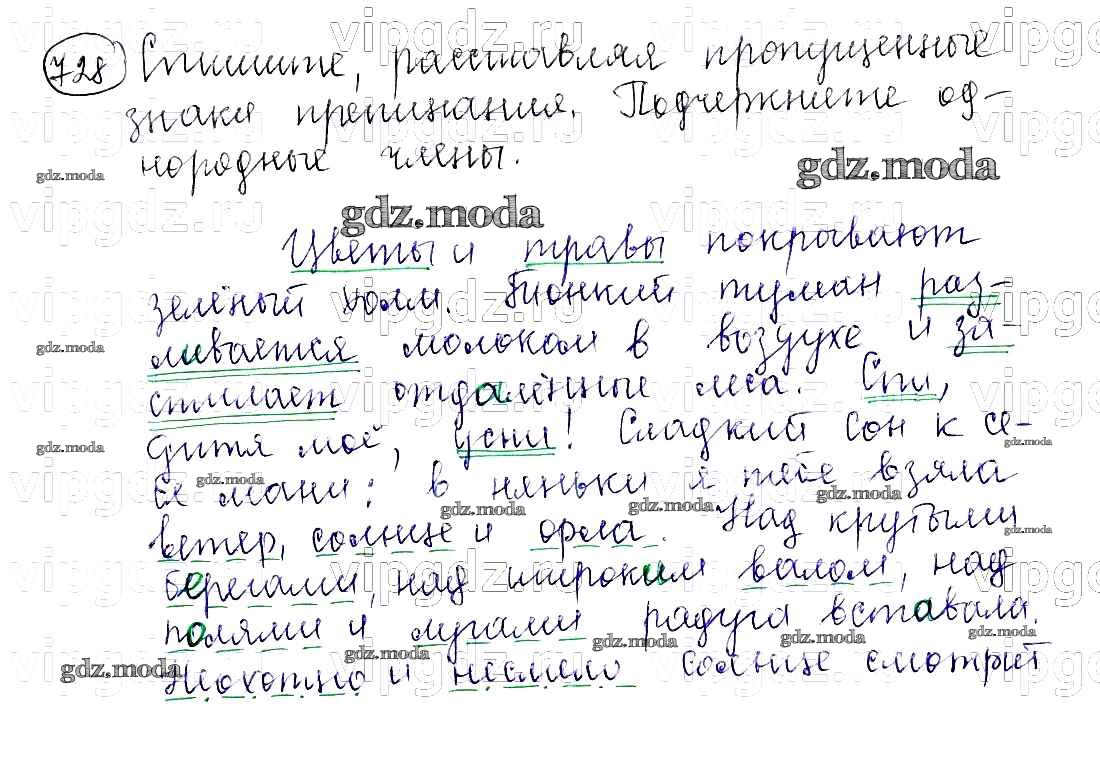 728 Спишите, расставляя пропущенные
знаки препинания. Подчеркните од-
нородные члены.
Цветы и травы покрывают
зелёный холм. Тонкий туман раз-
ливается молоком в воздухе и за-
стилает отдалённые леса. Спи,
дитя моё, усни! Сладкий сон к се-
бе мани: в няньки я тебе взяла
ветер, солнце и орла. Над крутыми
берегами, над широким валом, над
полями и лугами радуга вставала.
Неохотно и несмело солнце смотрит